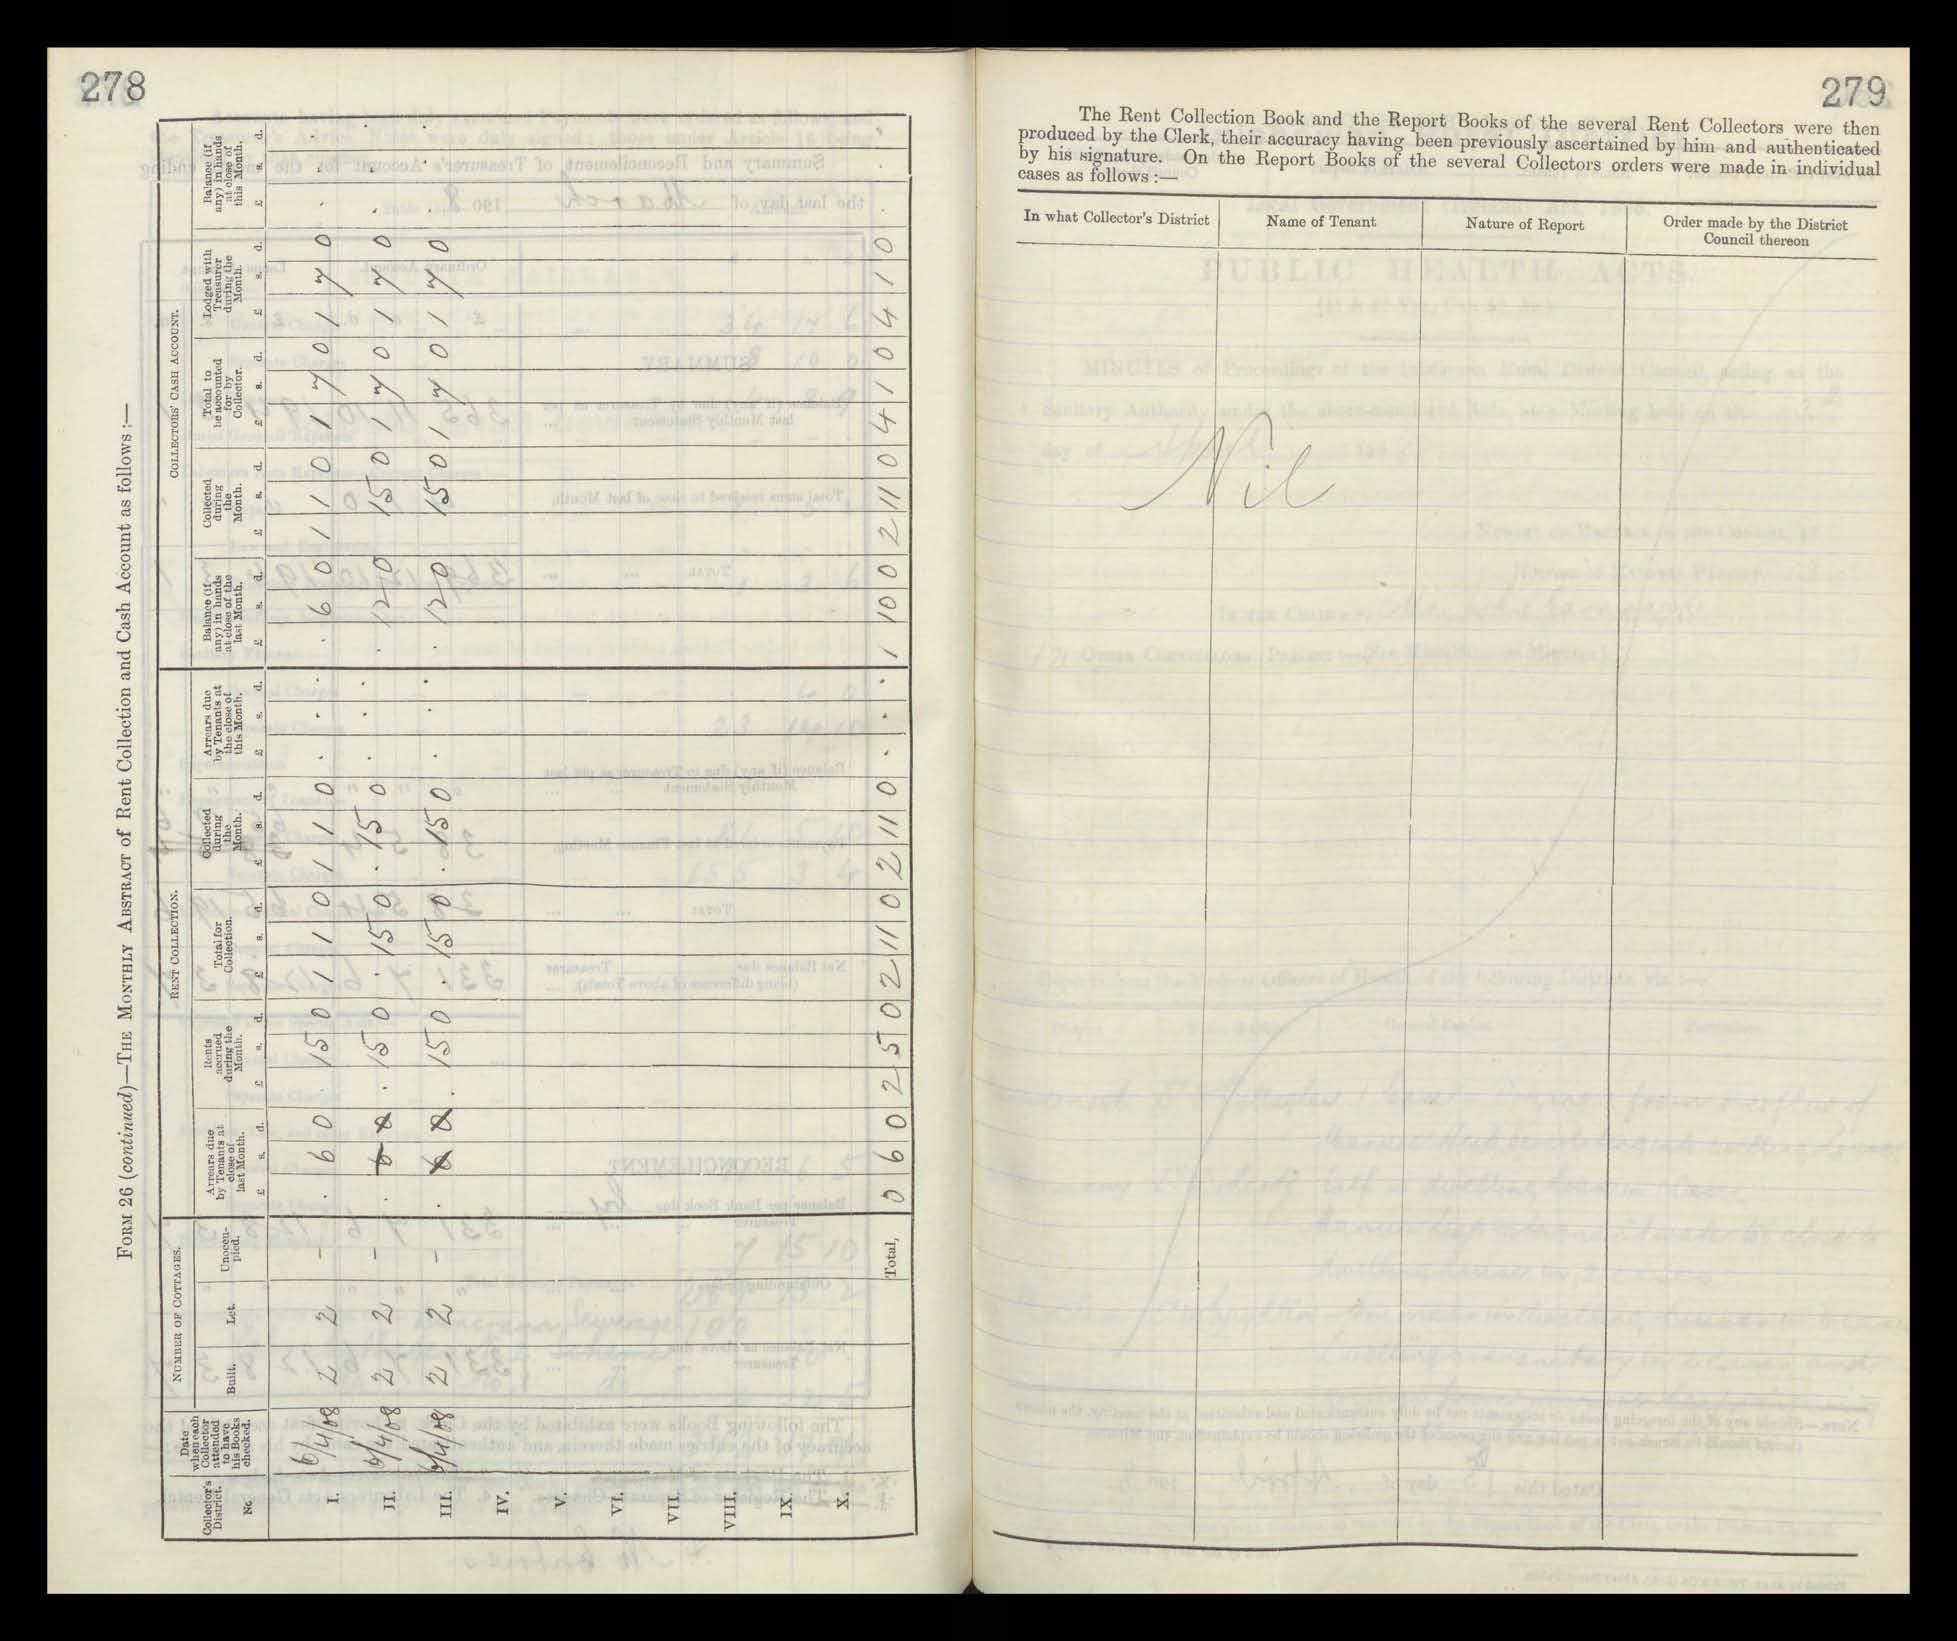 278
FORM 26 (continued)—THE MONTHLY ABSTRACT of Rent Collection and Cash Account as follows :—
Collector's District. No | Date when each Collector attended to have his Books checked. | NUMBER OF COTTAGES. | RENT COLLECTION. | COLLECTORS' CASH ACCOUNT.
Built. | Let. | Unoccupied. | Arrears due by Tenants at close of last Month. | Rents accrued during the Month. | Total for Collection. | Collected during the Month. | Arrears due by Tenants at the close of this Month. | Balance (if any) in hands at close of the last Month. | Collected during the Month. | Total to be accounted for by Collector. | Lodged with Treasurer during the Month. | Balance (if any) in hands at close of this Month.
£ s. d. | £ s. d. | £ s. d. | £ s. d. | £ s. d. | £ s. d. | £ s. d. | £ s. d. | £ s. d. | £ s. d.
I. | 6/4/08 | 2 | 2 | – | . 6 0 | . 15 0 | 1 1 0 | 1 1 0 | . . . | . 6 0 | 1 1 0 | 1 7 0 | 1 7 0 | . . .
II. | 6/4/08 | 2 | 2 | – | . 6 0 | . 15 0 | . 15 0 | . 15 0 | . . . | . 12 0 | 15 0 | 1 7 0 | 1 7 0 | . . .
III. | 6/4/08 | 2 | 2 | – | . 6 0 | . 15 0 | . 15 0 | . 15 0 | . . . | . 12 0 | 15 0 | 1 7 0 | 1 7 0 | . . .
IV.
V.
VI.
VII.
VIII.
IX
X.
Total, | 0 6 0 | 2 5 0 | 2 11 0 | 2 11 0 | . . . | 1 10 0 | 2 11 0 | 4 1 0 | 4 1 0 | . . .
279
The Rent Collection Book and the Report Books of the several Rent Collectors were then
produced by the Clerk, their accuracy having been previously ascertained by him and authenticated
by his signature. On the Report Books of the several Collectors orders were made in individual
cases as follows :—
In what Collector's District | Name of Tenant | Nature of Report | Order made by the District Council thereon
Nil